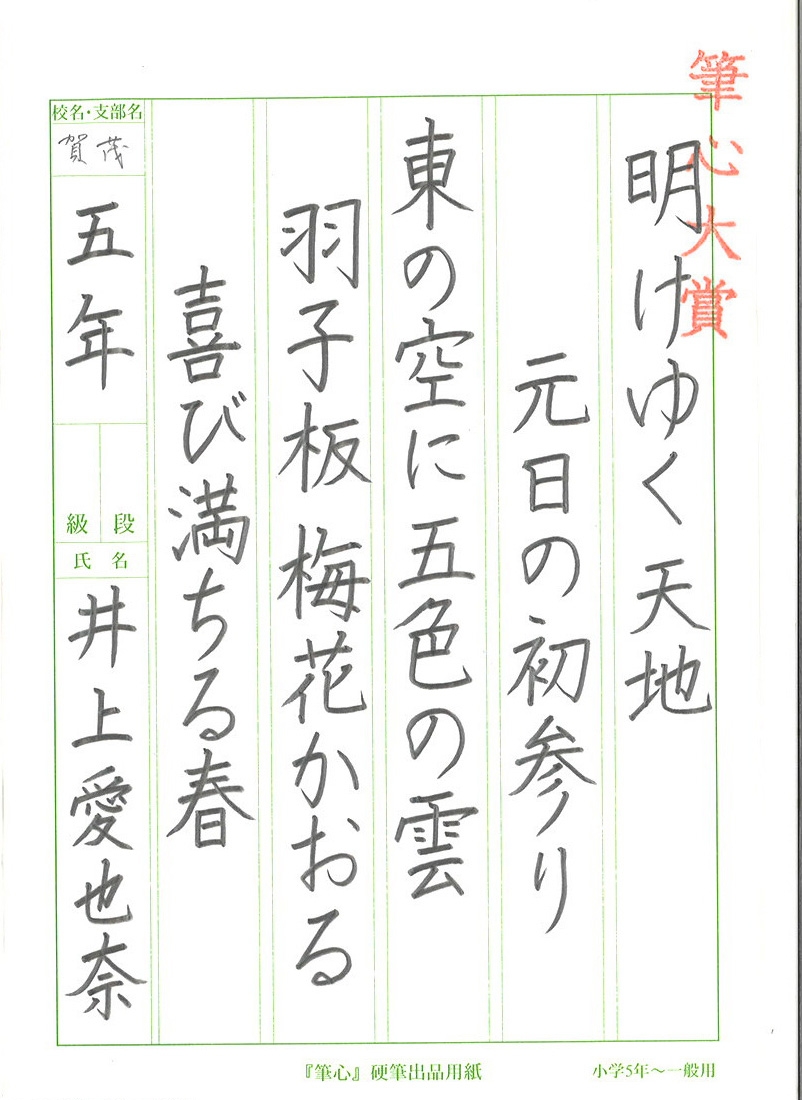 筆心大賞
明けゆく天地
元日の初参り
東の空に五色の雲
羽子板 梅花かおる
喜び満ちる春
校名・支部名
賀茂
五年
級 段
氏名
井上愛也奈
『筆心』硬筆出品用紙
小学5年〜一般用